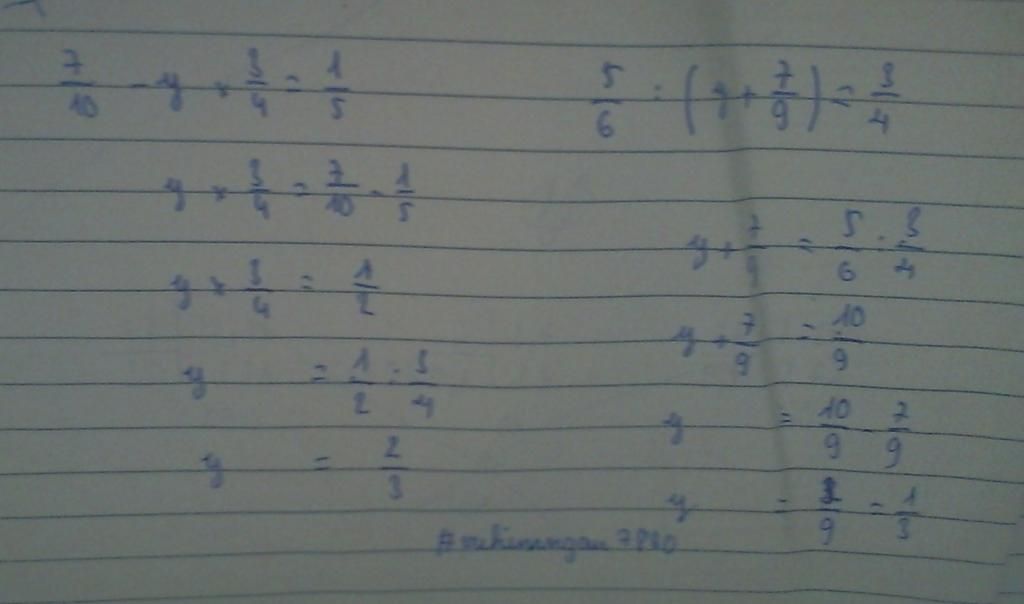 7/10 - y × 3/4 = 1/5
y × 3/4 = 7/10 - 1/5
y × 3/4 = 1/2
y = 1/2 : 3/4
y = 2/3
5/6 : (y + 7/9) = 3/4
y + 7/9 = 5/6 : 3/4
y + 7/9 = 10/9
y = 10/9 - 7/9
y = 3/9 = 1/3